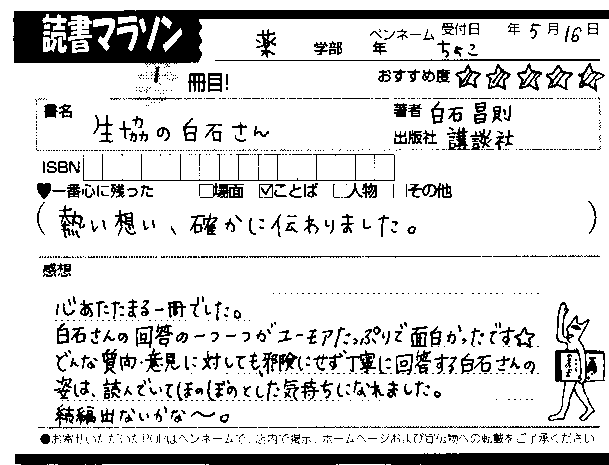 読書マラソン
薬 学部 年 ペンネーム ちゃこ 受付日 年5月16日
1 冊目!
おすすめ度 ☆☆☆☆☆
書名 生協の白石さん
著者 白石昌則
出版社 講談社
ISBN
♥一番心に残った □場面 ☑ことば □人物 □その他
(熱い想い、確かに伝わりました。)
感想
心あたたまる一冊でした。
白石さんの回答の一つ一つがユーモアたっぷりで面白かったです☆
どんな質問・意見に対しても邪険にせず丁寧に回答する白石さんの
姿は、読んでいてほのぼのとした気持ちになれました。
続編出ないかな〜。
●お寄せいただいたPOPはペンネームで、店内で掲示、ホームページおよび宣伝物への転載をご了承ください